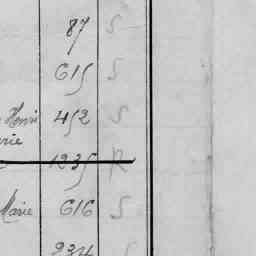 87 S
615 S
Henri 452 S
rie
1235 R
Marie 616 S
234 S